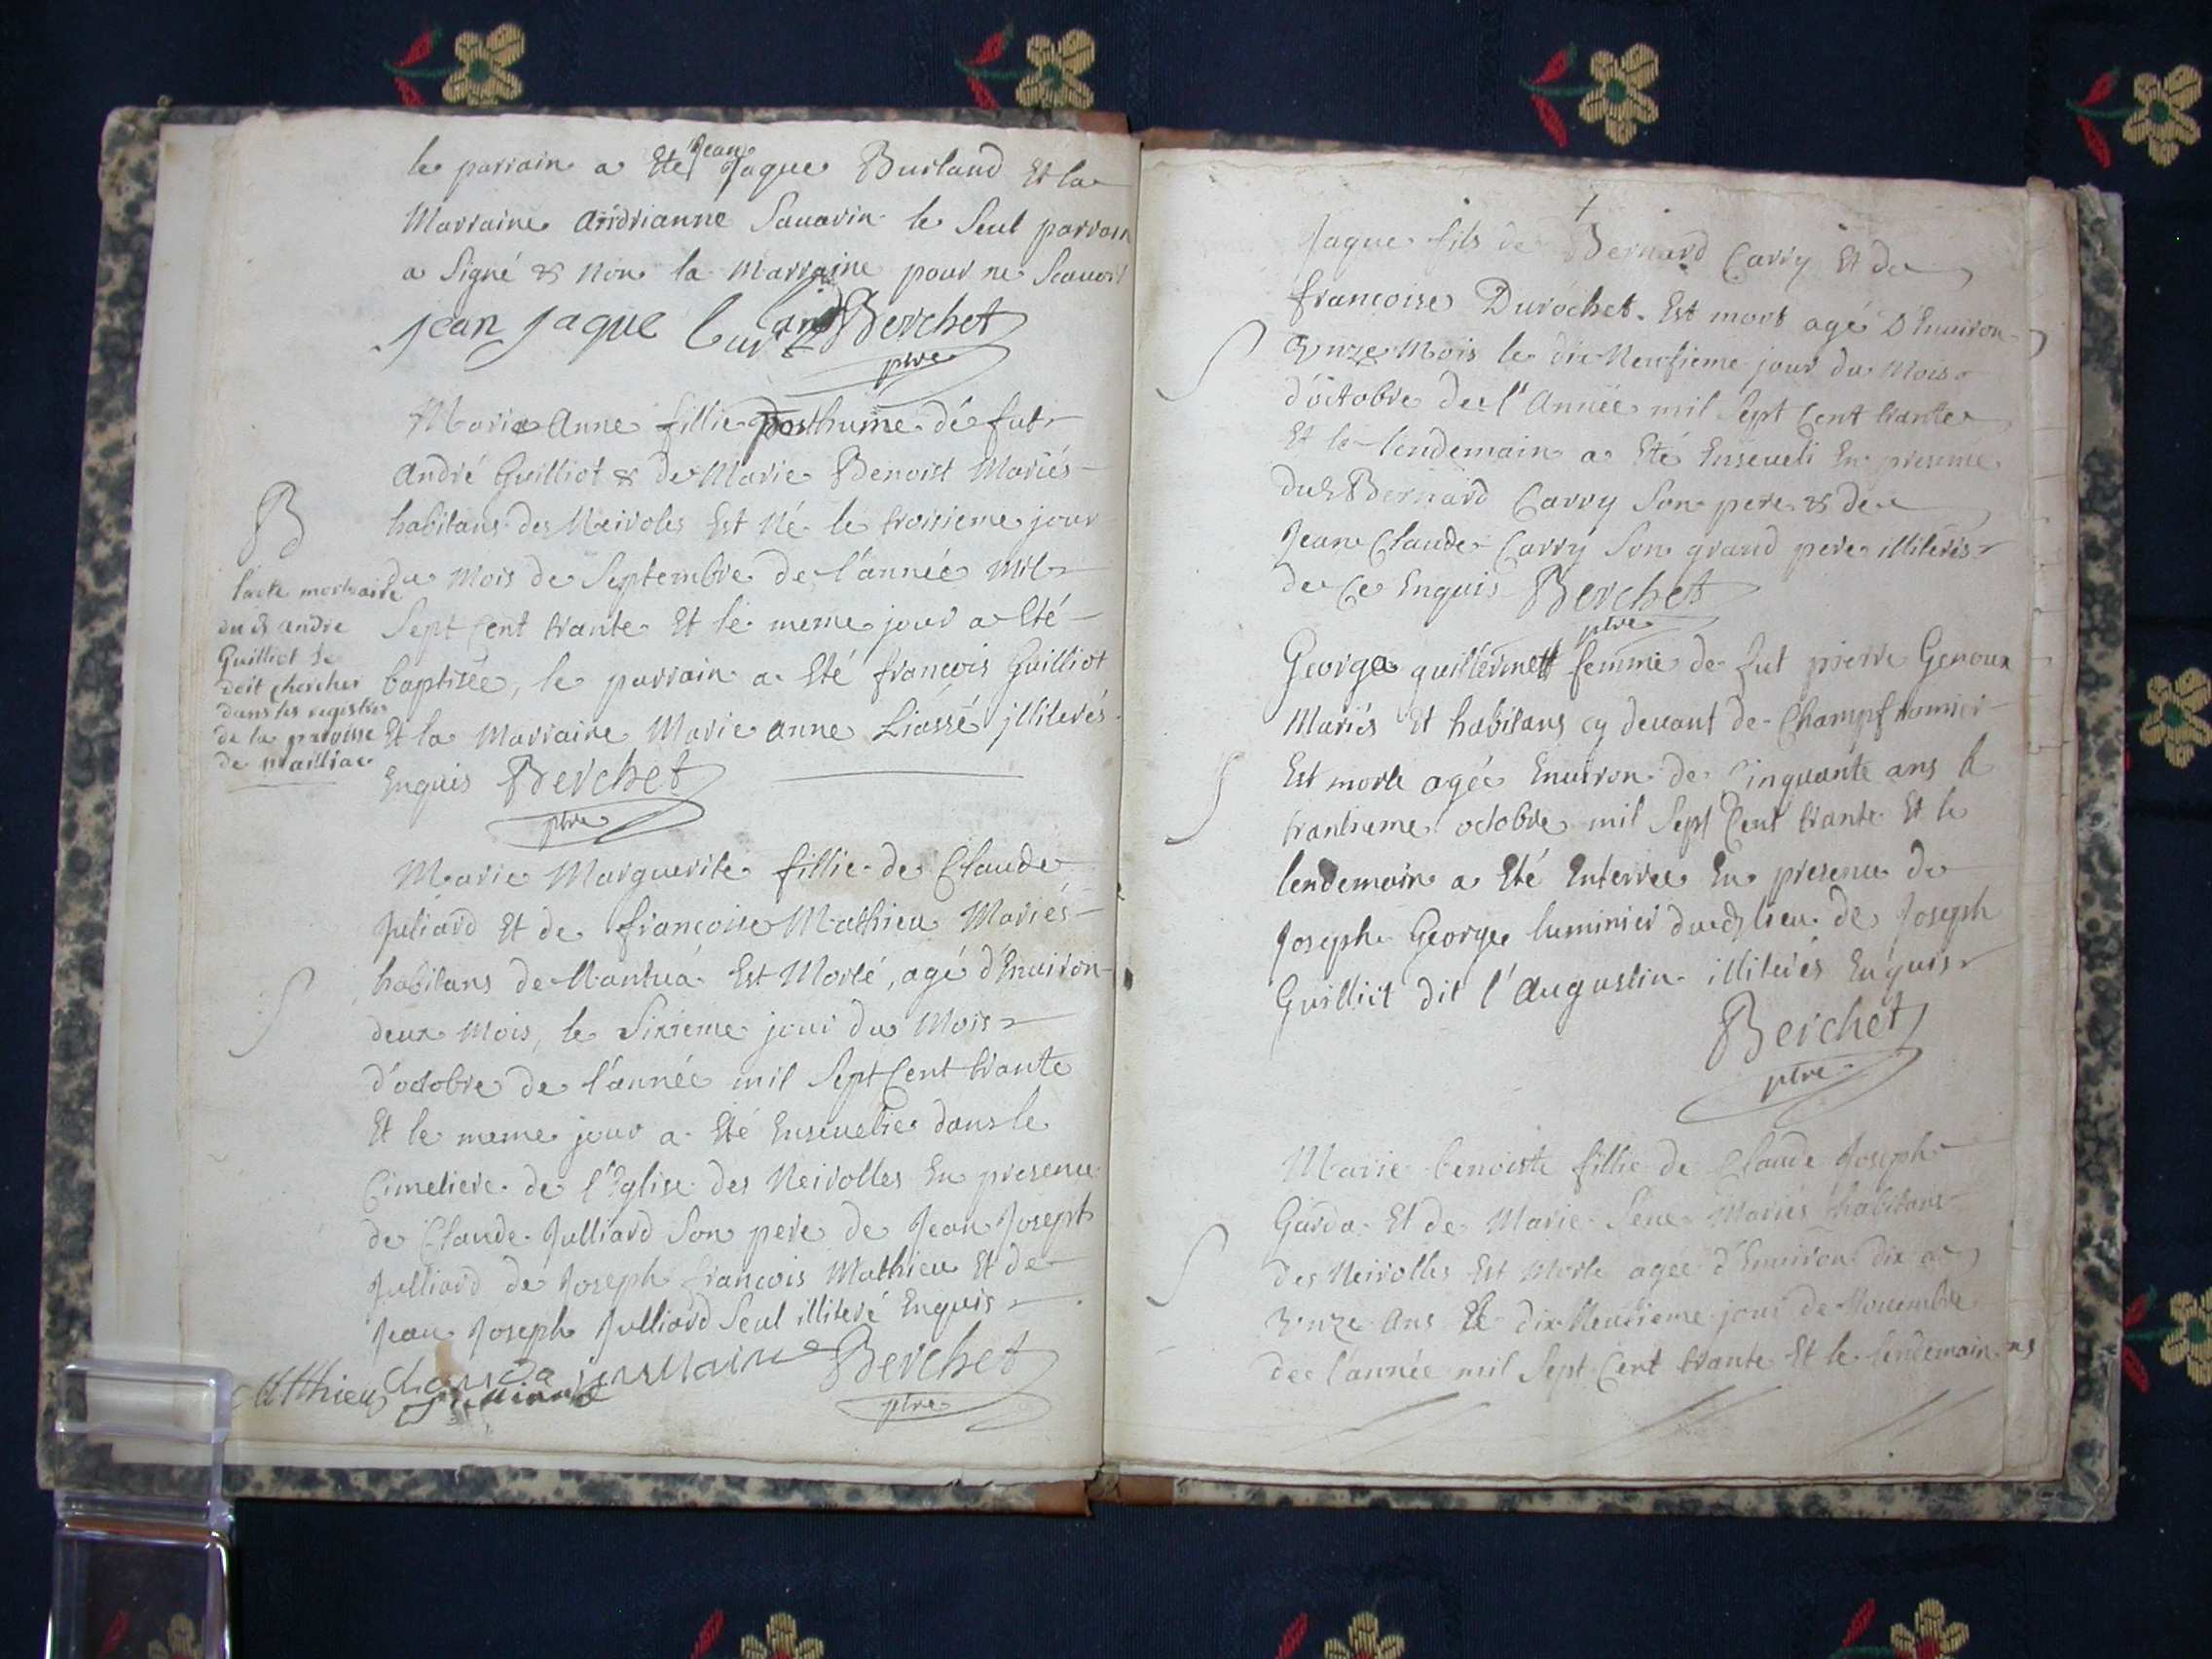 le parrain a Eté Jean Jaque Burland Et la
Marraine Andrianne Sauarin le Seul parrain
a Signé & Non la Marraine pour ne Scauoir
jean jaque burland Berchet
ptre
Marie Anne fillie posthume de fut
André Guilliot & de Marie Benoist Mariés
habitans des Neiroles Est Né le troisieme jour
du Mois de Septembre de l'année Mil
Sept Cent trante Et le meme jour a Eté
baptisée, le parrain a Eté francois Guilliot
Et la Marraine Marie anne Liassé jlliterés
Enquis Berchet
ptre
B
l'acte mortuaire
du d andre
Guilliot Se
doit chercher
dans les registres
de la paroisse
de Mailliac
Marie Marguerite fillie de Claude
Juliard Et de francoise Mathieu Mariés
habitans de Nantua Est Morte, agé d'Enuiron
deux Mois, le Sixieme jour du Mois
d'octobre de l'année mil Sept Cent trante
Et le meme jour a Eté Enseuelie dans le
Cimetiere de l'Eglise des Neirolles En presence
de Claude Julliard Son pere de Jean Joseph
Julliard de Joseph francois Mathieu Et de
Jean Joseph Julliard Seul illiteré Enquis
Matthieu Berchet
ptre
S
Jaque fils de Bernard Carry Et de
francoise Durochet Est mort agé D'Enuiron
Onze Mois le dix Neufieme jour du Mois
d'octobre de l'Année mil Sept Cent trante
Et le lendemain a Eté Enseueli En presence
dud Bernard Carry Son pere & de
Jean Claude Carry Son grand pere illiterés
de Ce Enquis Berchet
ptre
S
George guillermett femme de fut pierre Genoux
Mariés Et habitans cy deuant de Champfromier
Est morte agée Enuiron de Cinquante ans le
trantieme octobre mil Sept Cent trante Et le
lendemain a Eté Enterree En presence de
Joseph George luminier dud lieu de Joseph
Guilliot dit l'Augustin illiterés Enquis
Berchet
ptre
S
Marie benoiste fillie de Claude Joseph
Garda Et de Marie Sene Mariés habitans
des Neirolles Est Morte agée d'Enuiron dix a
Onze Ans le dix Neufieme jour de Nouembre
de l'année mil Sept Cent trante Et le lendemain